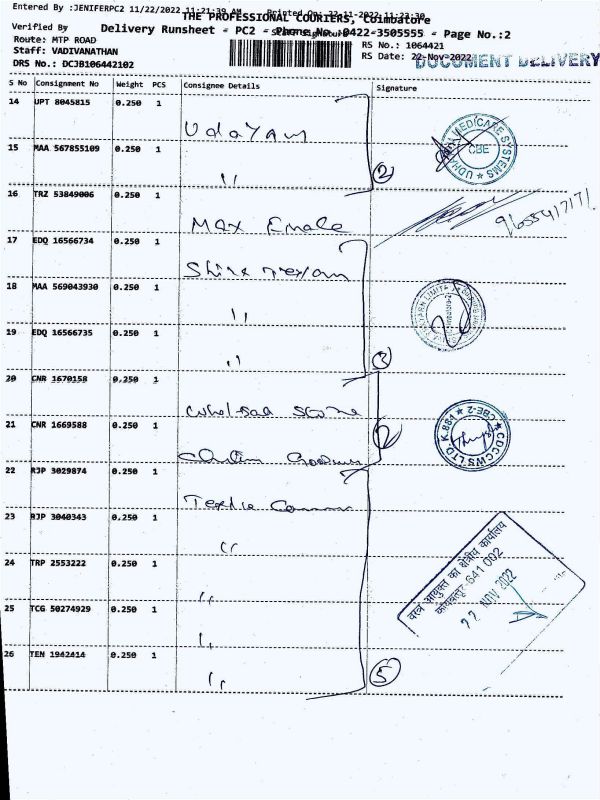 Entered By :JENIFERPC2 11/22/2022 11:21:39 AM Printed On: 22-11-2022 11:23:30
THE PROFESSIONAL COURIERS, Coimbatore
Verified By
Delivery Runsheet - PC2 - Phone No.:0422-3505555 - Page No.:2
Route: MTP ROAD
RS No.: 1064421
Staff: VADIVANATHAN
RS Date: 22-Nov-2022
DOCUMENT DELIVERY
DRS No.: DCJB106442102
S No Consignment No Weight PCS Consignee Details Signature
14 UPT 8045815 0.250 1
Udayam
15 MAA 567855109 0.250 1
"
2
UDHAYA MEDICARE SYSTEMS
CBE
16 TRZ 53849006 0.250 1
Max
9655417171
17 EDQ 16566734 0.250 1
18 MAA 569043930 0.250 1
"
19 EDQ 16566735 0.250 1
"
3
20 CNR 1670158 0.250 1
21 CNR 1669588 0.250 1
2
CDCCWS LTD. K.884 ★ CBE-2 ★
22 RJP 3029874 0.250 1
23 RJP 3040343 0.250 1
"
24 TRP 2553222 0.250 1
"
वस्त्र आयुक्त का क्षेत्रीय कार्यालय
कोयंबत्तूर-641 002
22 NOV 2022
25 TCG 50274929 0.250 1
"
26 TEN 1942414 0.250 1
"
5